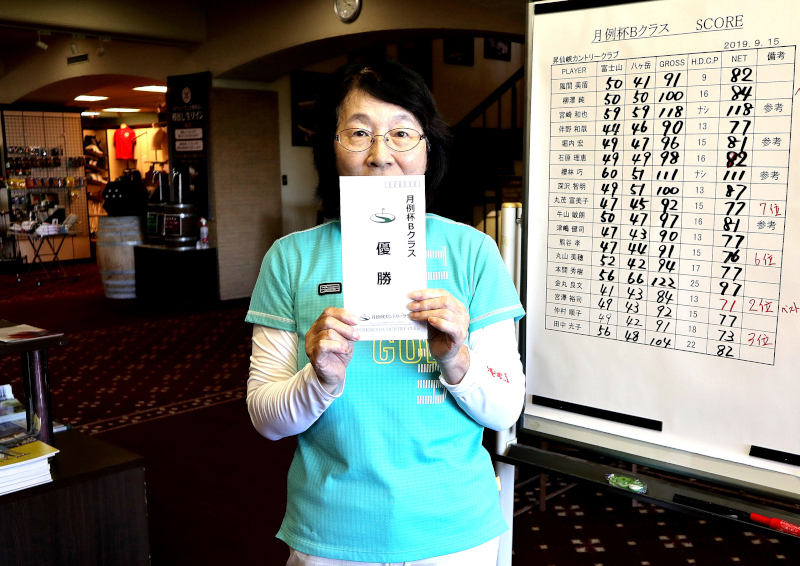 月例杯Bクラス
優勝
昇仙峡カントリークラブ
月例杯Bクラス SCORE
2019. 9. 15
昇仙峡カントリークラブ
PLAYER 富士山 八ヶ岳 GROSS H.D.C.P NET 備考
風間 美盾 50 41 91 9 82
柳澤 純 50 50 100 16 84
宮崎 和也 59 59 118 ナシ 118 参考
伴野 和哉 44 46 90 13 77
堀内 宏 49 47 96 15 81 参考
石原 理恵 49 49 98 16 82
櫻林 巧 60 51 111 ナシ 111 参考
深沢 智明 49 51 100 13 87
丸茂 富美子 47 45 92 15 77 7位
牛山 敏朗 50 47 97 16 81 参考
津嶋 健司 47 43 90 13 77
熊谷 孝 47 44 91 15 76 6位
丸山 美穂 52 42 94 17 77
本間 秀樹 56 66 122 25 97
金丸 良文 41 43 84 13 71 2位
宮澤 裕司 49 43 92 15 77
仲村 順子 49 42 91 18 73 3位
田中 光子 56 48 104 22 82